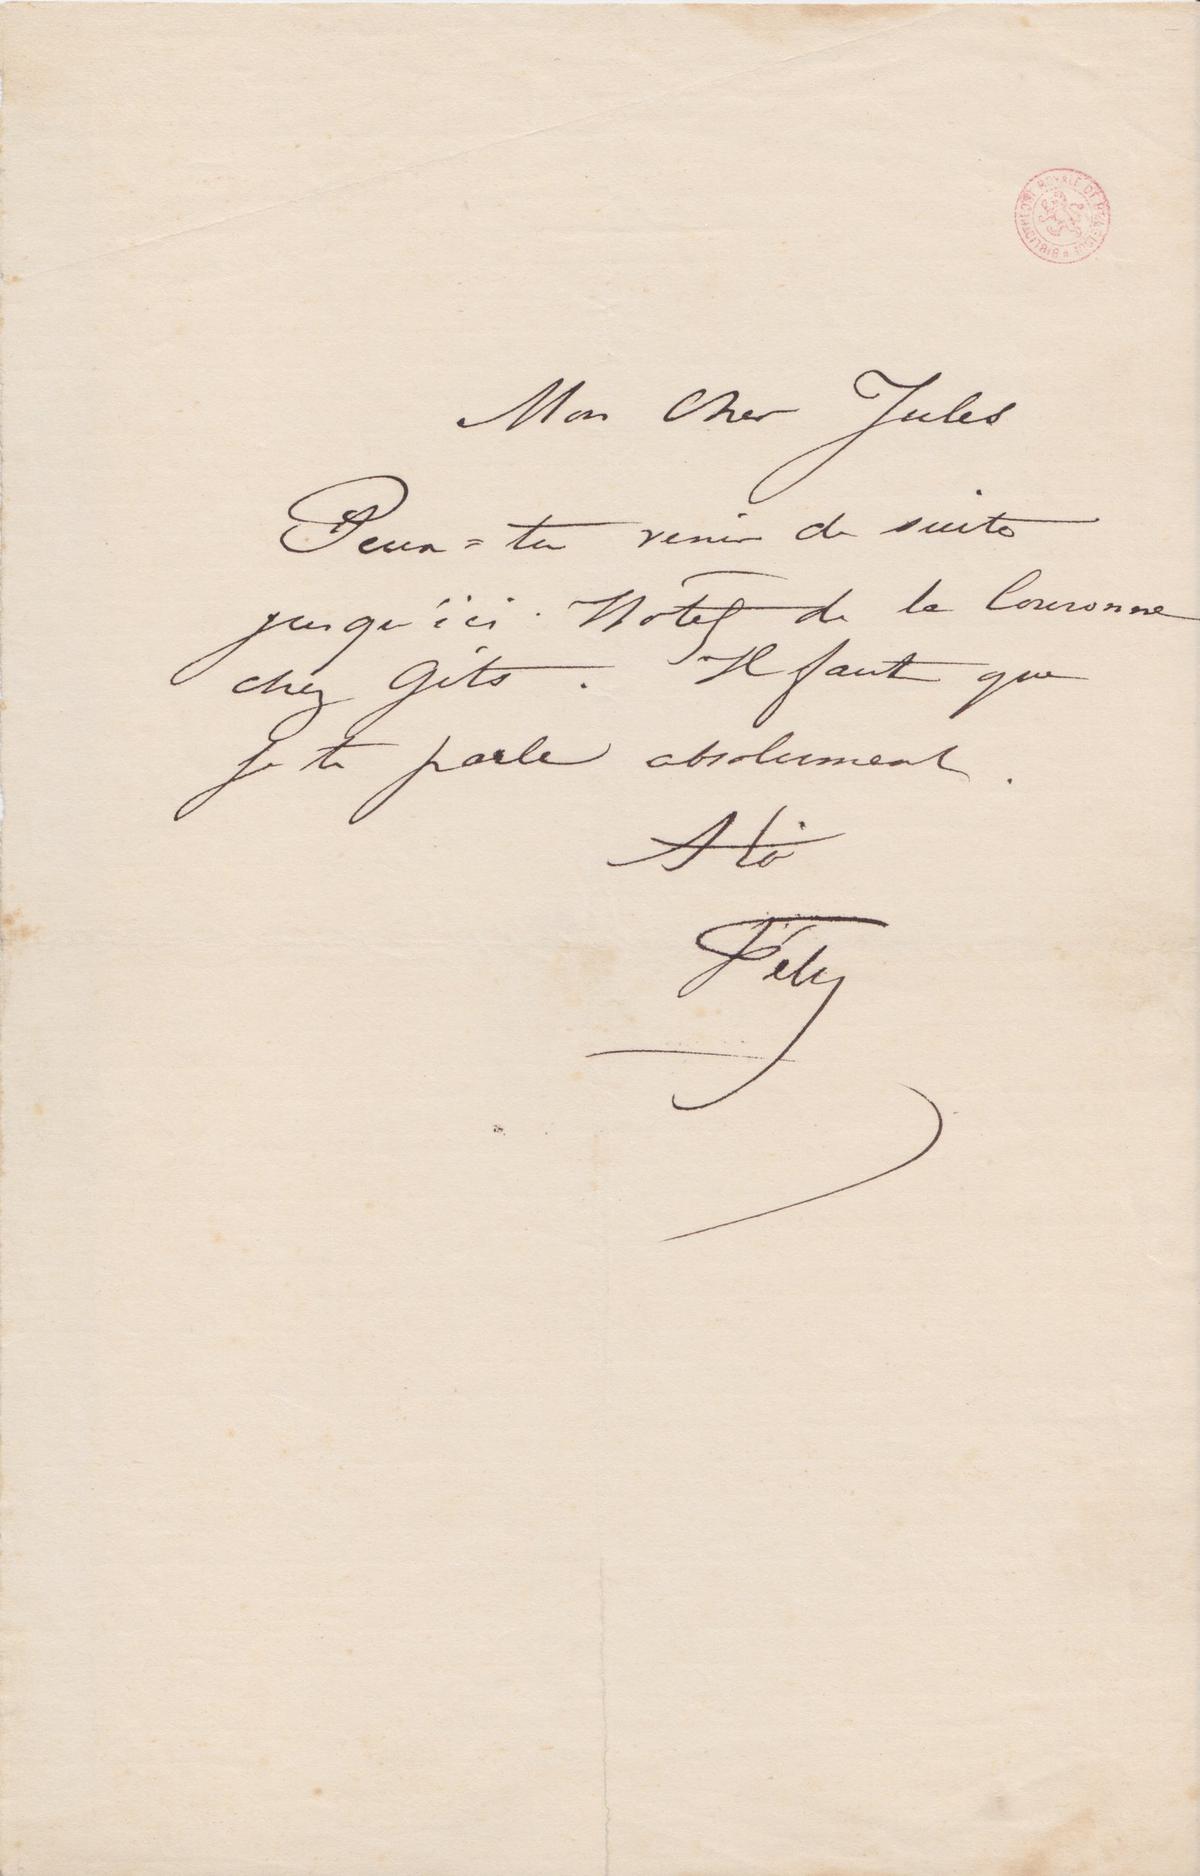 BIBLIOTHEQUE ROYALE DE BELGIQUE
Mon cher Jules
Peux=tu venir de suite
jusqu'ici. Hotel de la Couronne
chez Gits. Il faut que
je te parle absolument.
Fély